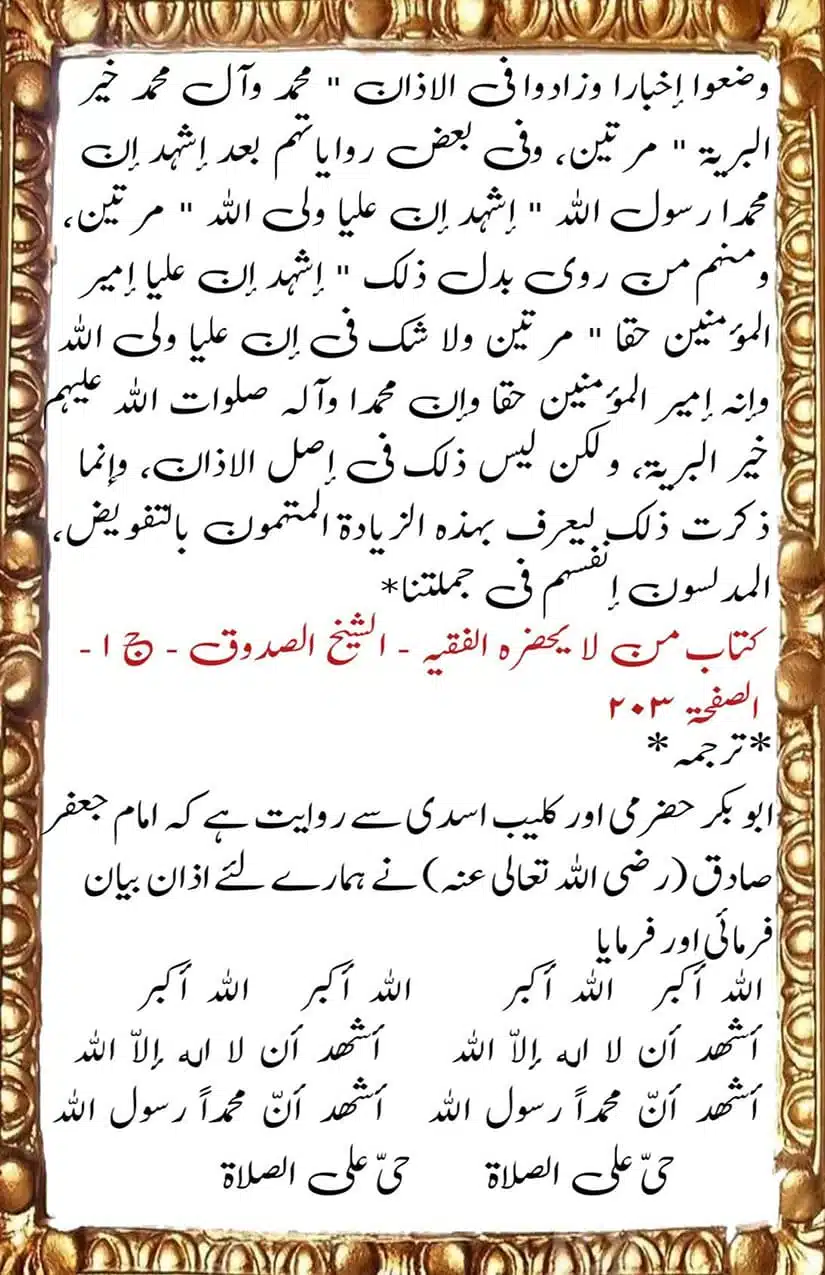 وضعوا إخبارا وزادوا فى الاذان " محمد وآل محمد خير
البرية " مرتين، وفى بعض رواياتهم بعد إشهد إن
محمدا رسول الله " إشهد إن عليا ولى الله " مرتين،
ومنهم من روى بدل ذلك " إشهد إن عليا إمير
المؤمنين حقا " مرتين ولا شك فى إن عليا ولى الله
وإنه إمير المؤمنين حقا وإن محمدا وآله صلوات الله عليهم
خير البرية، ولكن ليس ذلك فى إصل الاذان، وإنما
ذكرت ذلك ليعرف بهذه الزيادة المتهمون بالتفويض،
المدلسون إنفسهم فى جملتنا*
كتاب من لا يحضره الفقيه - الشيخ الصدوق - ج ١ -
الصفحة ٢٠٣
*ترجمہ*
ابو بکر حضرمی اور کلیب اسدی سے روایت ہے کہ امام جعفر
صادق (رضی اللہ تعالی عنہ) نے ہمارے لئے اذان بیان
فرمائی اور فرمایا
الله أكبر الله أكبر الله أكبر الله أكبر
أشهد أن لا اله إلاّ الله أشهد أن لا اله إلاّ الله
أشهد أنّ محمداً رسول الله أشهد أنّ محمداً رسول الله
حيّ على الصلاة حيّ على الصلاة